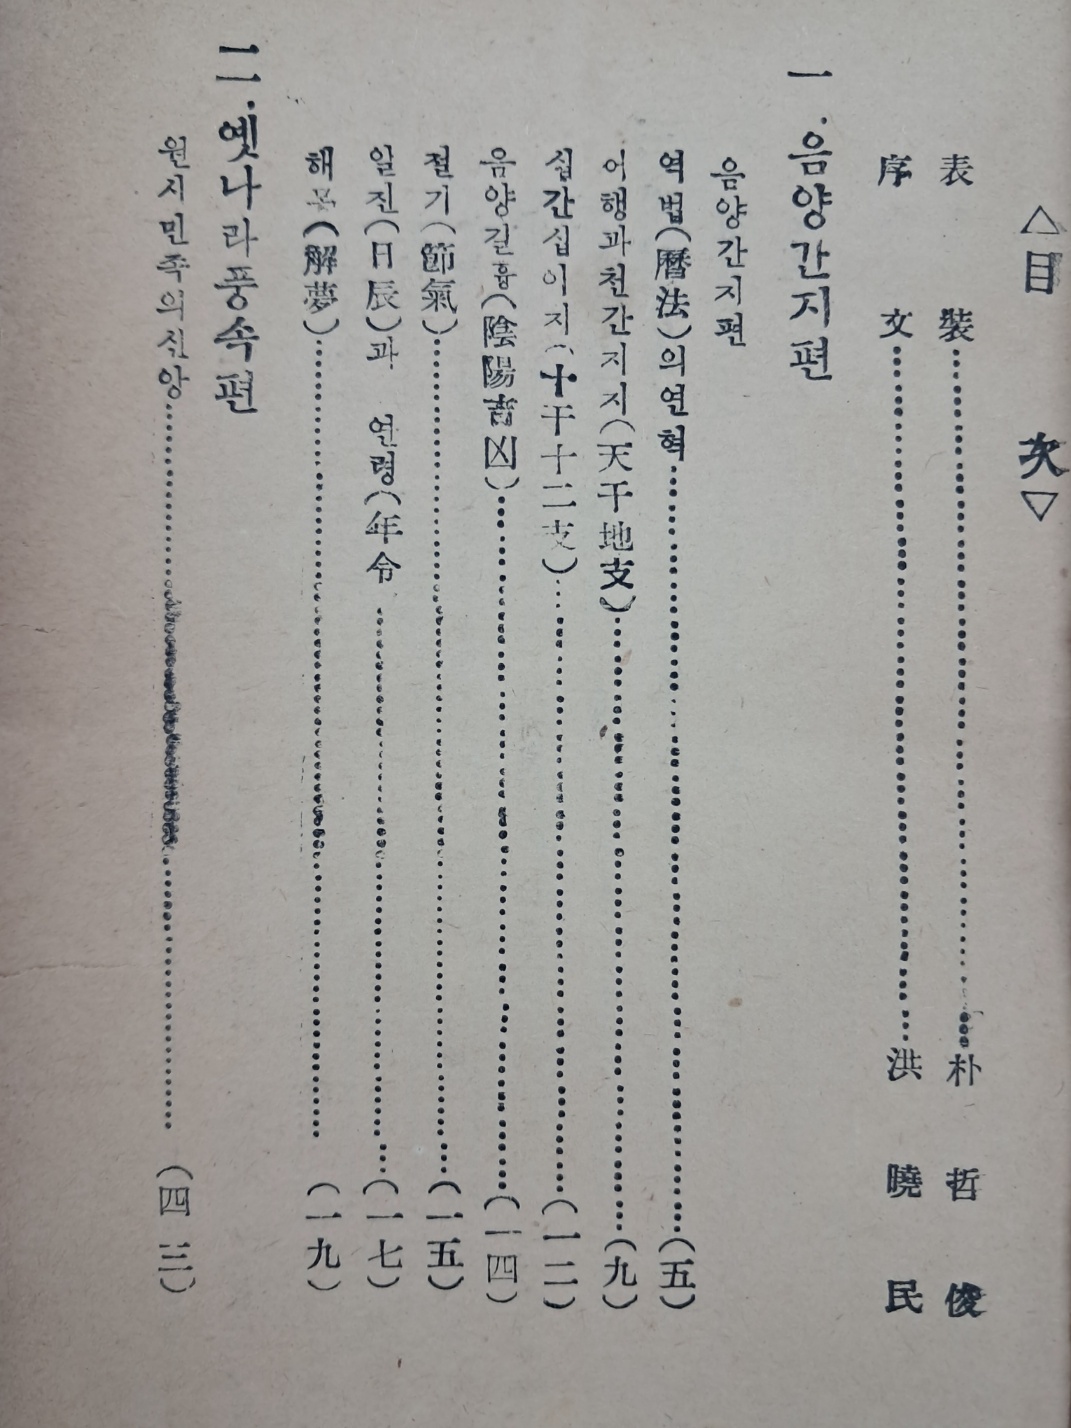 △目 次▽
表 裝……朴 哲 俊
序 文……洪 曉 民
一. 음양간지편
음양간지편
역법(曆法)의연혁……(五)
어행과천간지지(天干地支)……(九)
십간십이지(十干十二支)……(一二)
음양길흉(陰陽吉凶)……(一四)
절기(節氣)……(一五)
일진(日辰)과 연령(年令……(一七)
해몽(解夢)……(一九)
二. 옛나라풍속편
원시민족의신앙……(四三)